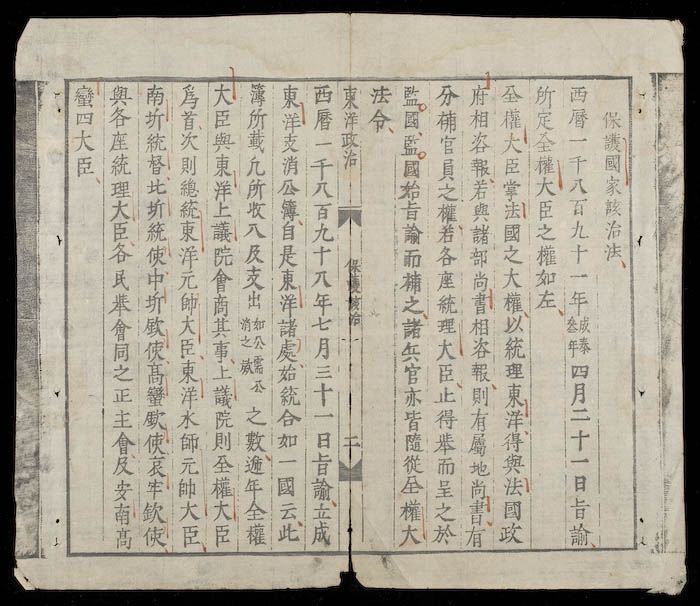 保護國家該治法
西曆一千八百九十一年成泰叁年四月二十一日旨諭
所定全權大臣之權如左
全權大臣掌法國之大權以統理東洋得與法國政
府相咨報若與諸部尚書相咨報則有屬地尚書有
分補官員之權若各座統理大臣止得舉而呈之於
監國監國始旨諭而補之諸兵官亦皆隨從全權大
法令
東洋政治
保護該治
二
西曆一千八百九十八年七月三十一日旨諭立成
東洋支消公簿自是東洋諸處始統合如一國云此
簿所載凡所收入及支出如公需公消之類之數遞年全權
大臣與東洋上議院會商其事上議院則全權大臣
爲首次則總統東洋元帥大臣東洋水師元帥大臣
南圻統督北圻統使中圻欽使高蠻欽使哀牢欽使
與各座統理大臣各民舉會同之正主會及安南高
蠻四大臣